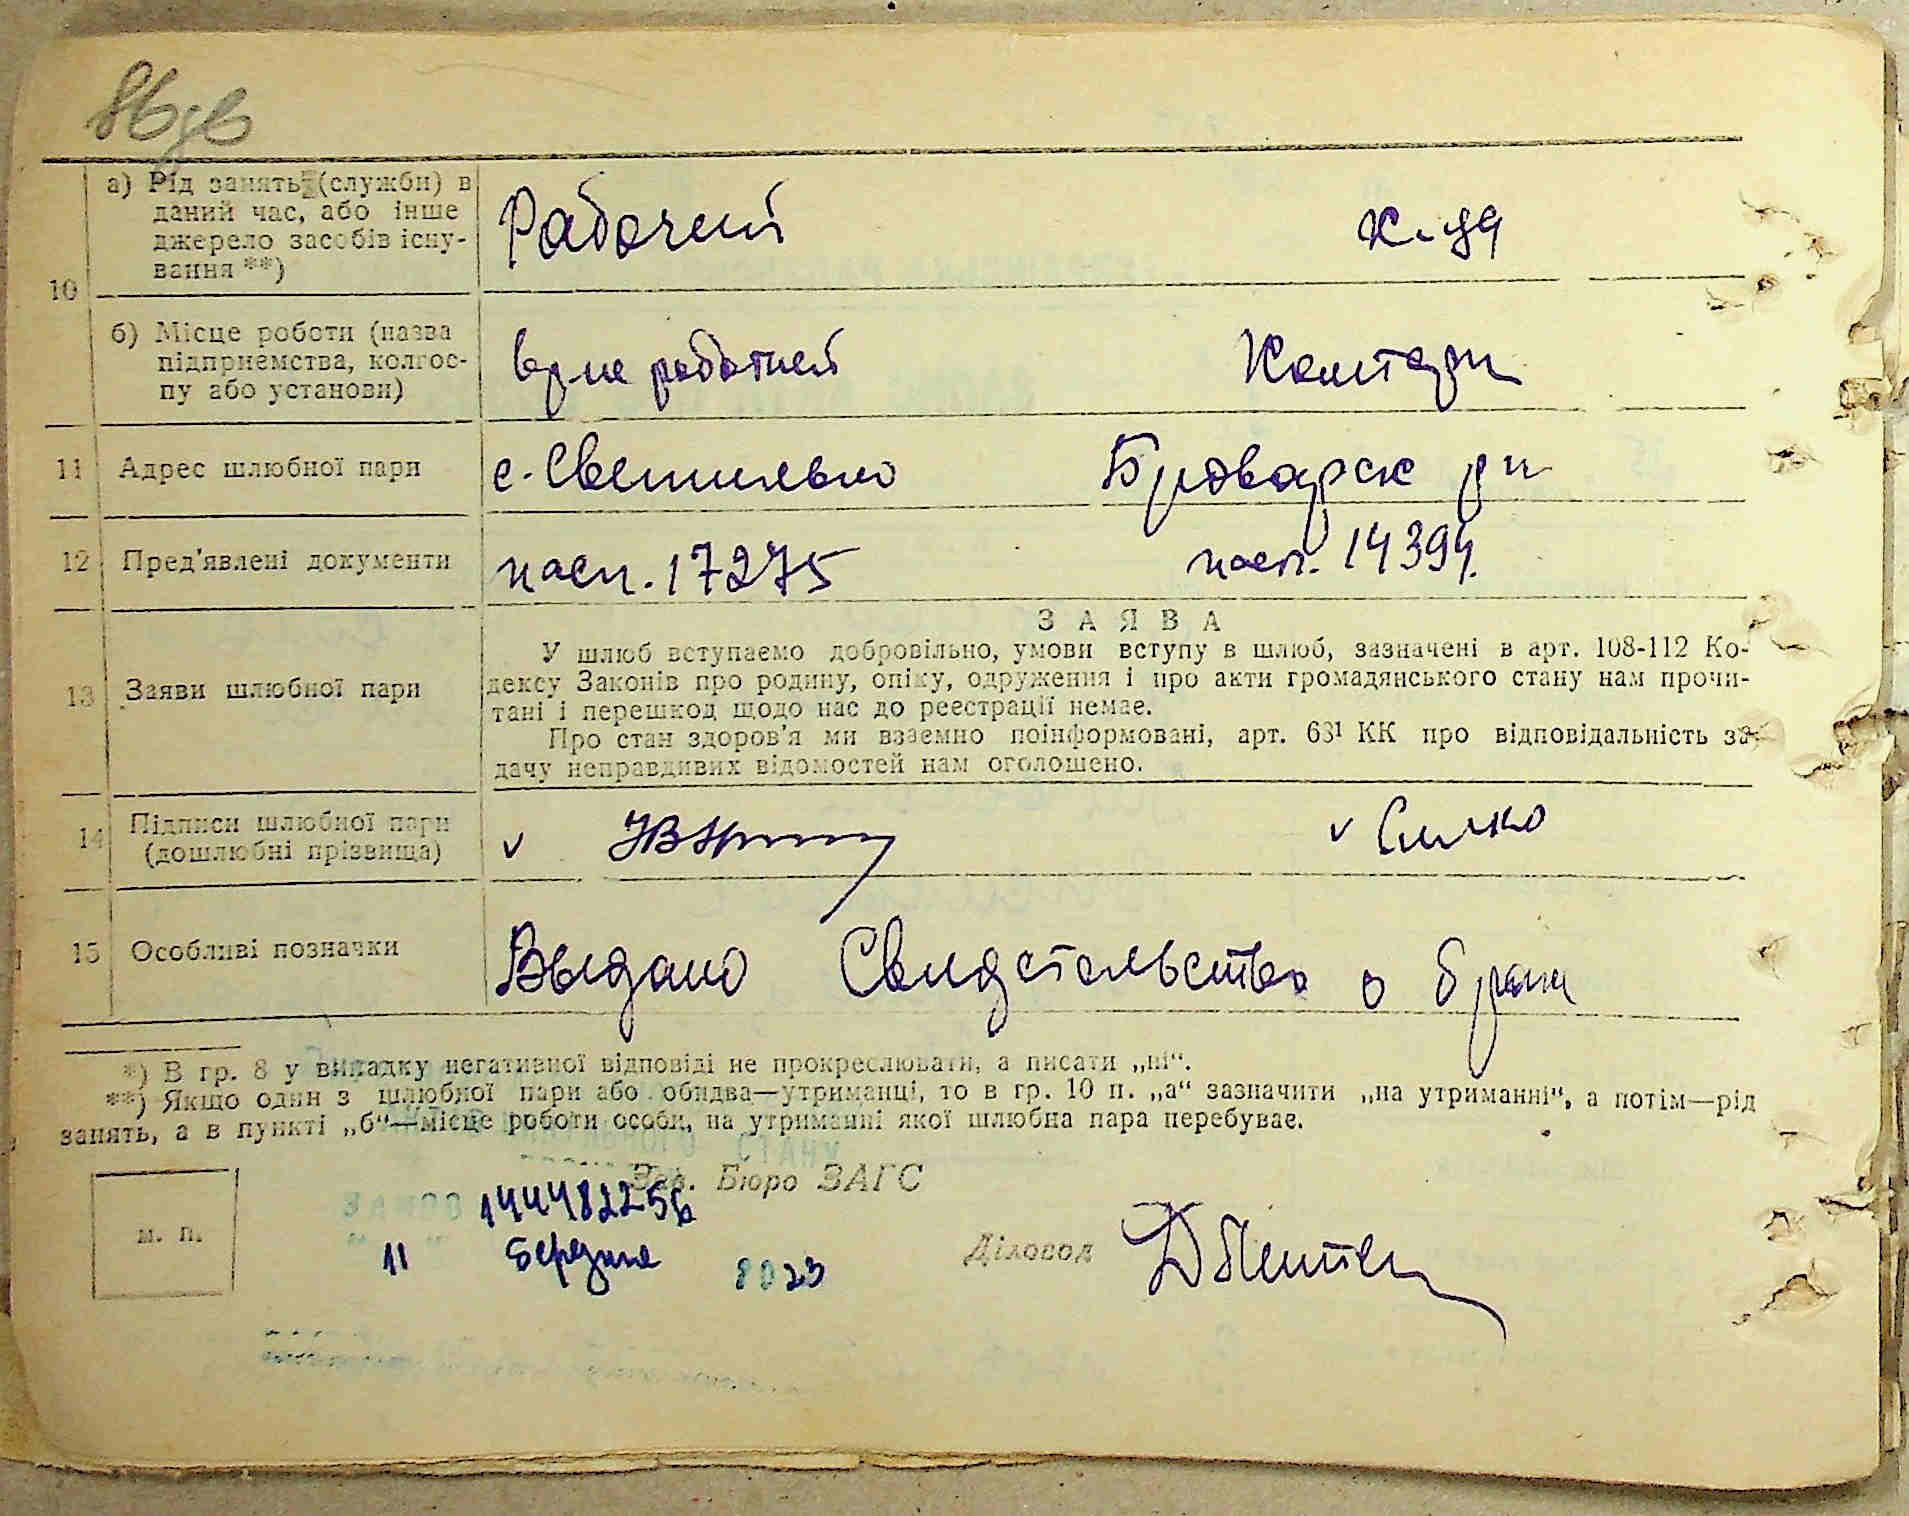 86зв
а) Рід занять (служби) в
даний час, або інше
джерело засобів існу-
вання **)
Рабочий
к-ця
10
б) Місце роботи (назва
підприємства, колгос-
пу або установи)
11 Адрес шлюбної пари
с. Светильно Броварск рн
12 Пред'явлені документи
пасп. 17275 пасп. 14394.
ЗАЯВА
13 Заяви шлюбної пари
У шлюб вступаємо добровільно, умови вступу в шлюб, зазначені в арт. 108-112 Ко-
дексу Законів про родину, опіку, одруження і про акти громадянського стану нам прочи-
тані і перешкод щодо нас до реестрації немає.
Про стан здоров'я ми взаємно поінформовані, арт. 68¹ КК про відповідальність за
дачу неправдивих відомостей нам оголошено.
14 Підписи шлюбної пари
(дошлюбні прізвища)
v v Сичко
15 Особливі позначки
Выдано Свидетельство о браке
*) В гр. 8 у випадку негативної відповіді не прокреслювати, а писати „ні“.
**) Якщо один з шлюбної пари або обидва—утриманці, то в гр. 10 п. „а“ зазначити „на утриманні“, а потім—рід
занять, а в пункті „б“—місце роботи особи, на утриманні якої шлюбна пара перебуває.
Зав. Бюро ЗАГС
м. п.
Діловод
11 березня 23